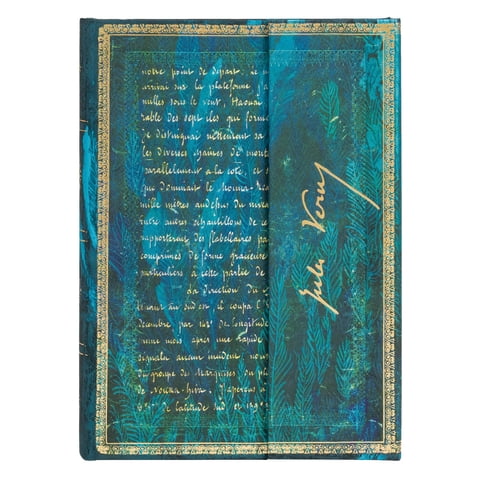 notre point de départ. Je m
arrivai sur la plateforme, j'a
milles sous le vent, Haouaï
rable des sept îles qui forme
de distinguai nettement sa
les diverses chaînes de mont
parallèlement à la côte, et s
que dominant le Mouna-Rea
mille mètres au dessus du nivea
autres échantillons de ce
rapportèrent des flabellaires pa
comprimés de forme gracieuse
particuliers à cette partie de
La direction du
au sud est. il coupa l'É
décembre par 142° de longitude
même mois après une rapide
signala aucun incident, nous
du groupe des Marquises. du pl
de Nouka-hiva. J'aperçus
de latitude sud et 139°
Jules Verne